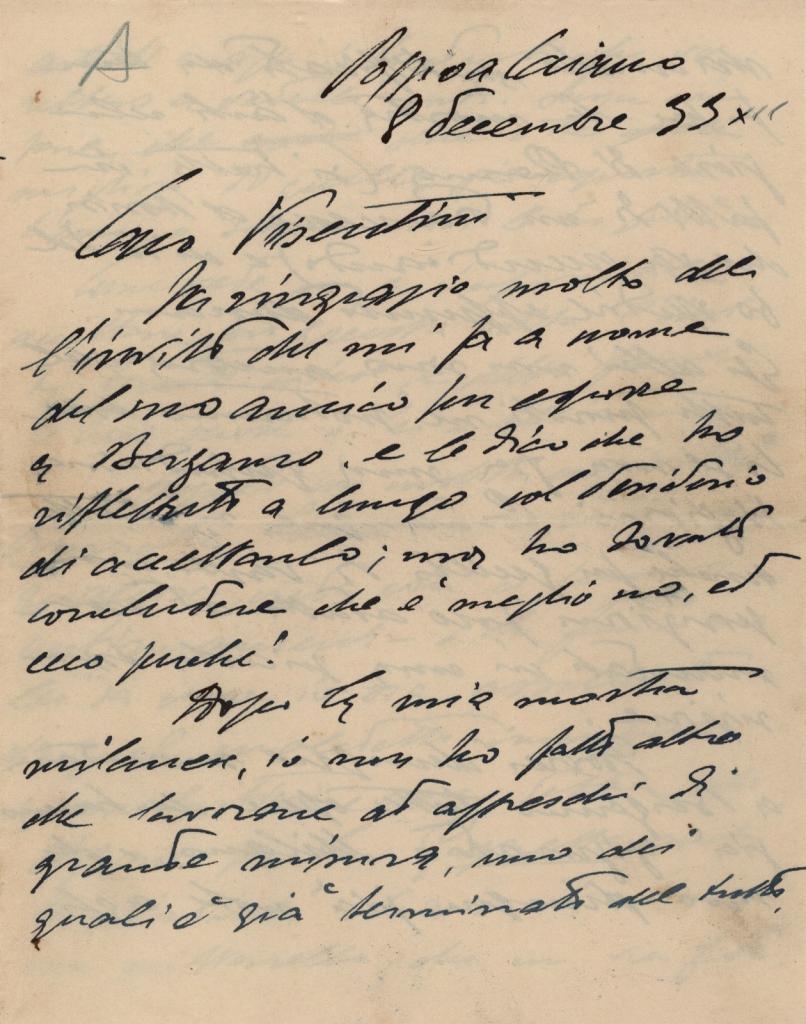 A
Poggio a Caiano
8 decembre 33 XII
Caro Visentini
La ringrazio molto del
l'invito che mi fa a nome
del suo amico per esporre
a Bergamo. e le dico che ho
riflettuto a lungo col desiderio
di accettarlo; ma ho dovuto
concludere che è meglio no, ed
ecco perché:
Dopo la mia mostra
milanese, io non ho fatto altro
che lavorare ad affreschi di
grande misura, uno dei
quali è già terminato del tutto,